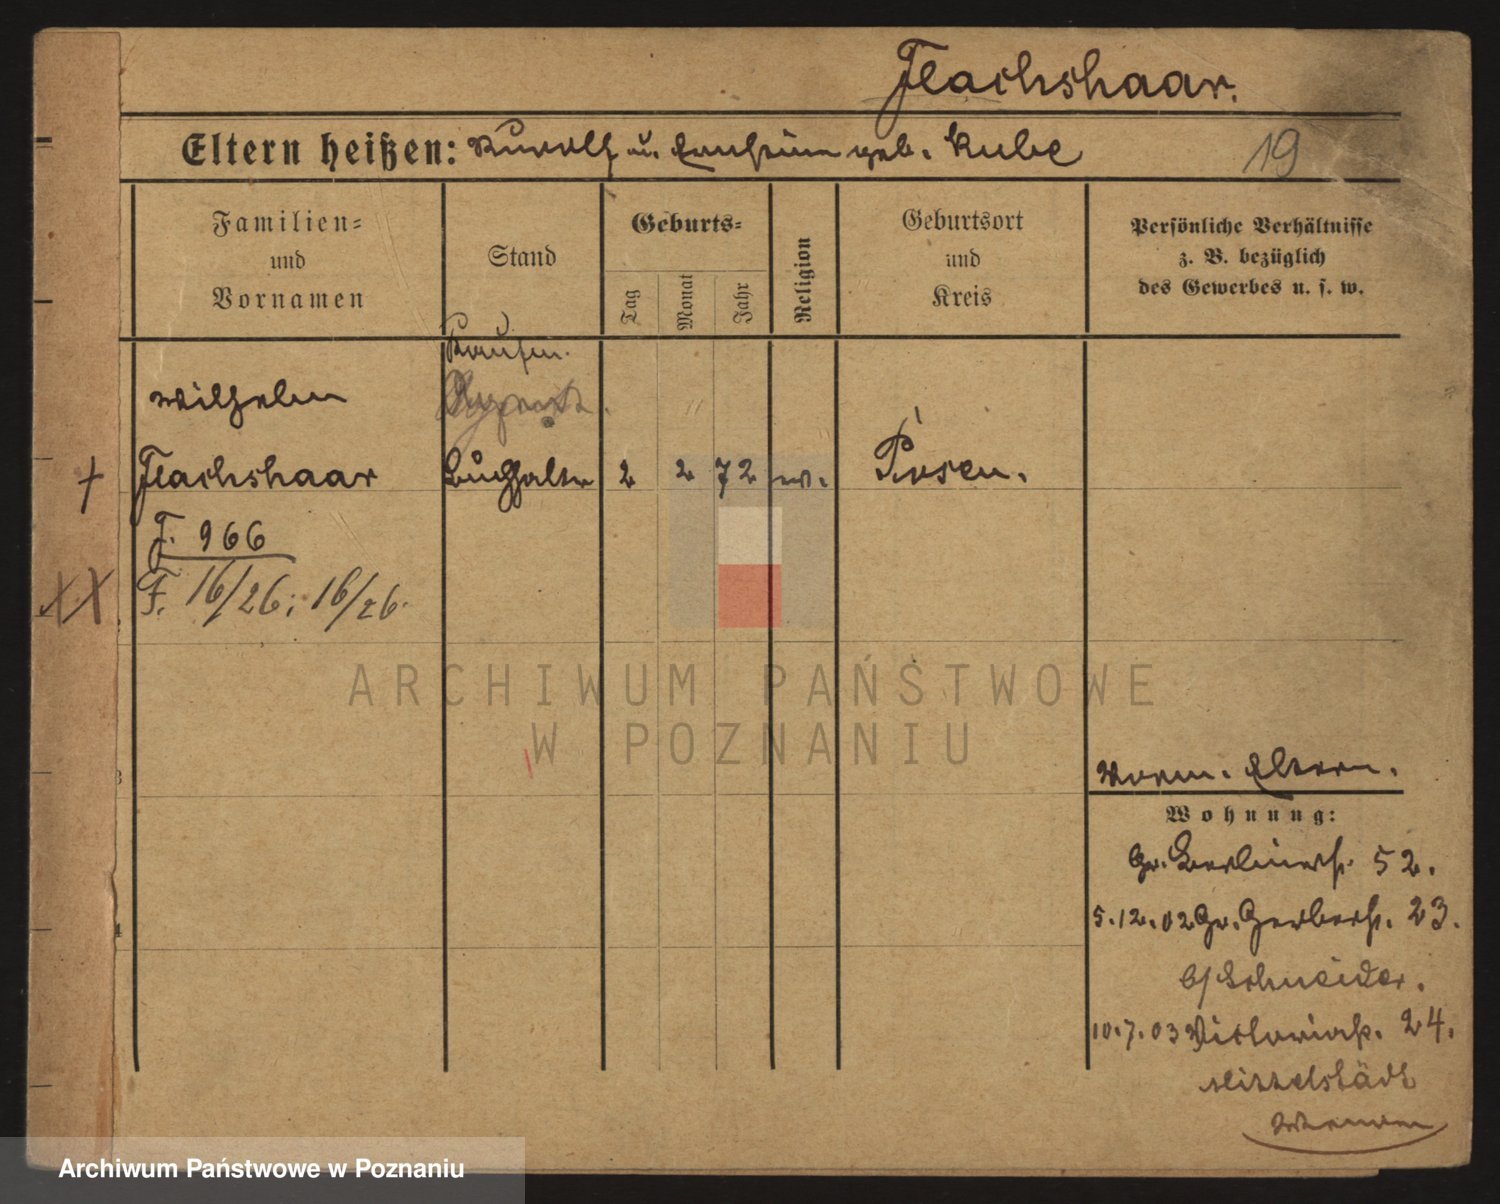 Flachshaar.
Eltern heißen: Rudolf u. geb. Kube
19
Familien-
und
Vornamen
Stand
Geburts-
Tag
Monat
Jahr
Religion
Geburtsort
und
Kreis
Persönliche Verhältnisse
z. B. bezüglich
des Gewerbes u. s. w.
Kaufm.
Wilhelm
† Flachshaar Buchhalter 2 2 72 ev. Posen.
F. 966
XX F. 16/26; 16/26.
3
4
Eltern.
Wohnung:
Gr. Berlinerstr. 52.
5.12.02 Gr. Gerberstr. 23.
b/ Schneider.
10.7.03 Victoriastr. 24.
Mittelstädt
ARCHIWUM PAŃSTWOWE
W POZNANIU
Archiwum Państwowe w Poznaniu